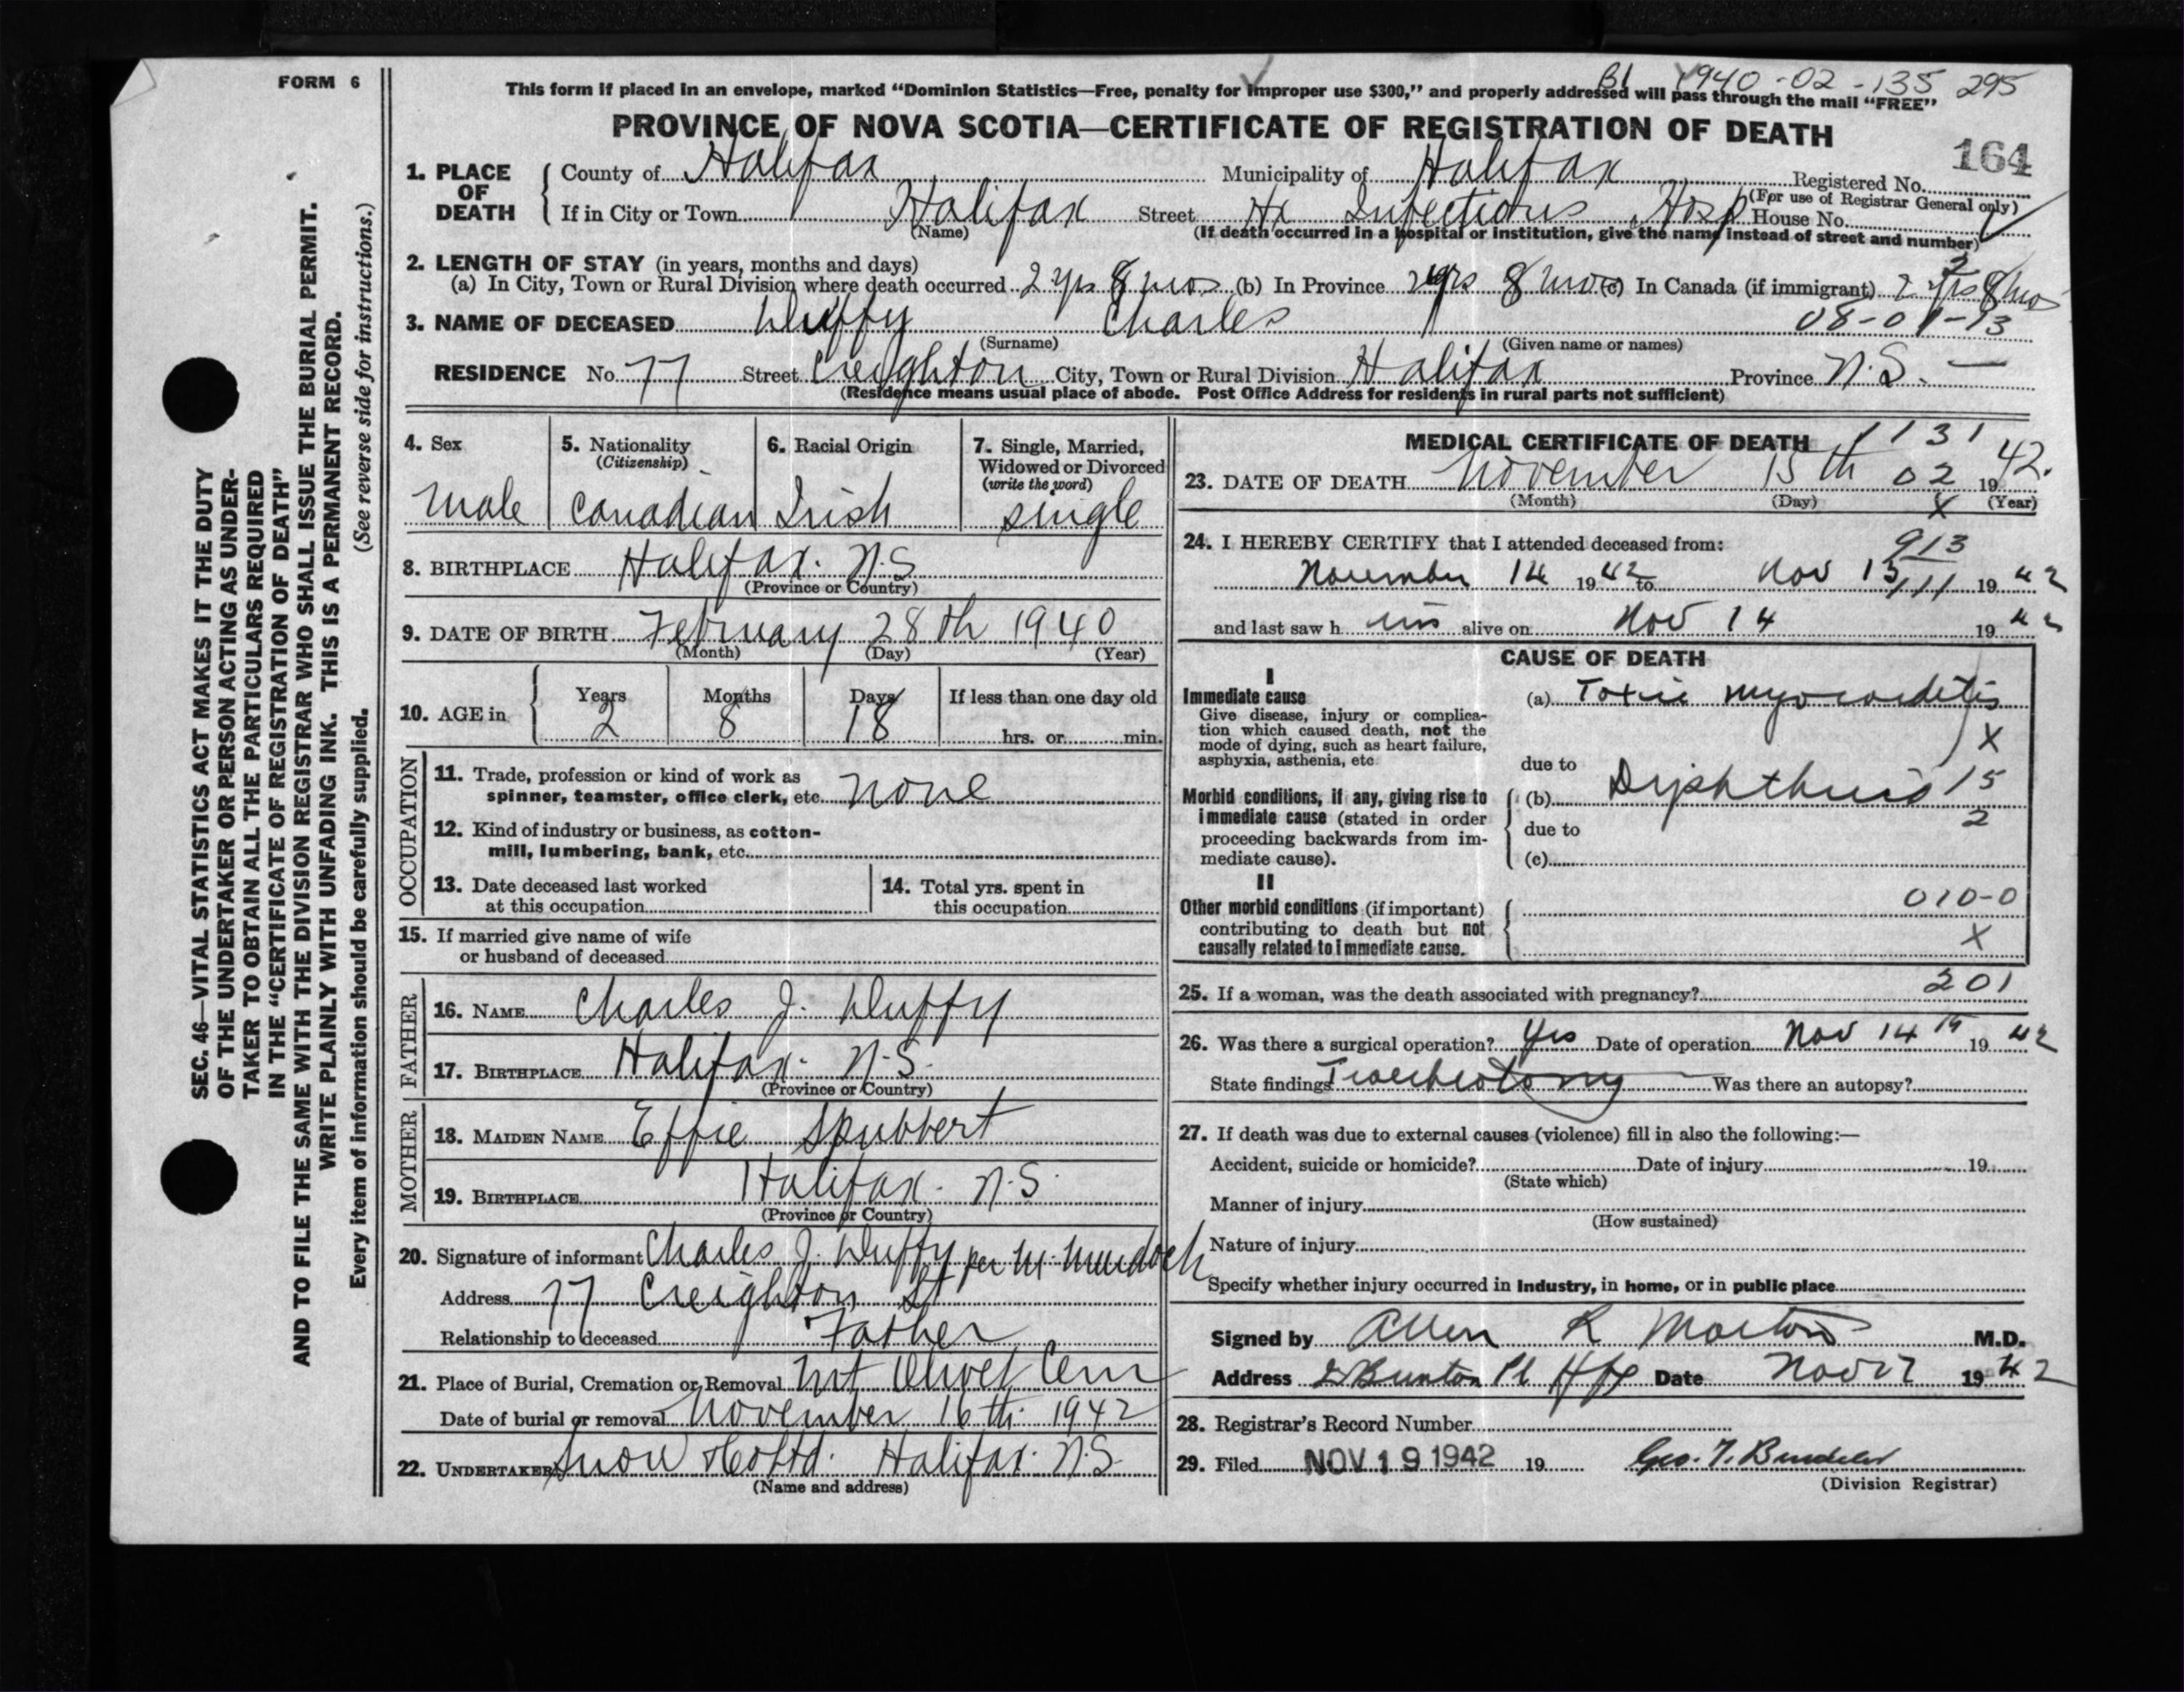 FORM 6
B1 1940-02-135295
This form if placed in an envelope, marked “Dominion Statistics—Free, penalty for improper use $300,” and properly addressed will pass through the mail “FREE”
PROVINCE OF NOVA SCOTIA—CERTIFICATE OF REGISTRATION OF DEATH
164
1. PLACE OF DEATH County of Halifax Municipality of Halifax Registered No.
(For use of Registrar General only)
If in City or Town Halifax Street Hx Infectious Hosp House No.
(Name) (If death occurred in a hospital or institution, give the name instead of street and number)
2. LENGTH OF STAY (in years, months and days)
(a) In City, Town or Rural Division where death occurred 2 yrs 8 mos (b) In Province 2 yrs 8 mos (c) In Canada (if immigrant) 2 yrs 8 mos
3. NAME OF DECEASED Duffy Charles
(Surname) (Given name or names)
RESIDENCE No. 77 Street Creighton City, Town or Rural Division Halifax Province N.S. —
(Residence means usual place of abode. Post Office Address for residents in rural parts not sufficient)
4. Sex
male
5. Nationality
(Citizenship)
Canadian
6. Racial Origin
Irish
7. Single, Married,
Widowed or Divorced
(write the word)
single
8. BIRTHPLACE Halifax. N.S
(Province or Country)
9. DATE OF BIRTH February 28th 1940
(Month) (Day) (Year)
10. AGE in
Years Months Days If less than one day old
2 8 18 hrs. or min.
OCCUPATION
11. Trade, profession or kind of work as
spinner, teamster, office clerk, etc. none
12. Kind of industry or business, as cotton-
mill, lumbering, bank, etc.
13. Date deceased last worked
at this occupation
14. Total yrs. spent in
this occupation
15. If married give name of wife
or husband of deceased
FATHER
16. NAME Charles J. Duffy
17. BIRTHPLACE Halifax. N.S.
(Province or Country)
MOTHER
18. MAIDEN NAME Effie
19. BIRTHPLACE Halifax. N.S.
(Province or Country)
20. Signature of informant Charles J. Duffy per M. Murdoch
Address 77 Creighton St
Relationship to deceased Father
21. Place of Burial, Cremation or Removal Mt Olivet Cem
Date of burial or removal November 16th. 1942
22. UNDERTAKER Snow & Co Ltd. Halifax. N.S.
(Name and address)
MEDICAL CERTIFICATE OF DEATH 1131
23. DATE OF DEATH November 15th 02 1942.
(Month) (Day) X (Year)
24. I HEREBY CERTIFY that I attended deceased from: 913
November 14 1942 to Nov 15 111 1942
and last saw h im alive on Nov 14 1942
CAUSE OF DEATH
I
Immediate cause
Give disease, injury or complica-
tion which caused death, not the
mode of dying, such as heart failure,
asphyxia, asthenia, etc
(a) Toxic myocarditis
X
due to
Morbid conditions, if any, giving rise to
immediate cause (stated in order
proceeding backwards from im-
mediate cause).
(b) Diphtheria 15
due to 2
(c)
II
Other morbid conditions (if important)
contributing to death but not
causally related to immediate cause.
010-0
X
201
25. If a woman, was the death associated with pregnancy?
26. Was there a surgical operation? Yes Date of operation Nov 14 th 1942
State findings Tracheotomy Was there an autopsy?
27. If death was due to external causes (violence) fill in also the following:—
Accident, suicide or homicide? Date of injury 19
(State which)
Manner of injury
(How sustained)
Nature of injury
Specify whether injury occurred in Industry, in home, or in public place
Signed by Allen R Morton M.D.
Address Hfx Date Nov 17 1942
28. Registrar's Record Number
29. Filed NOV 19 1942 19 Geo. T.
(Division Registrar)
SEC. 46—VITAL STATISTICS ACT MAKES IT THE DUTY
OF THE UNDERTAKER OR PERSON ACTING AS UNDER-
TAKER TO OBTAIN ALL THE PARTICULARS REQUIRED
IN THE “CERTIFICATE OF REGISTRATION OF DEATH”
AND TO FILE THE SAME WITH THE DIVISION REGISTRAR WHO SHALL ISSUE THE BURIAL PERMIT.
WRITE PLAINLY WITH UNFADING INK. THIS IS A PERMANENT RECORD.
Every item of information should be carefully supplied. (See reverse side for instructions.)